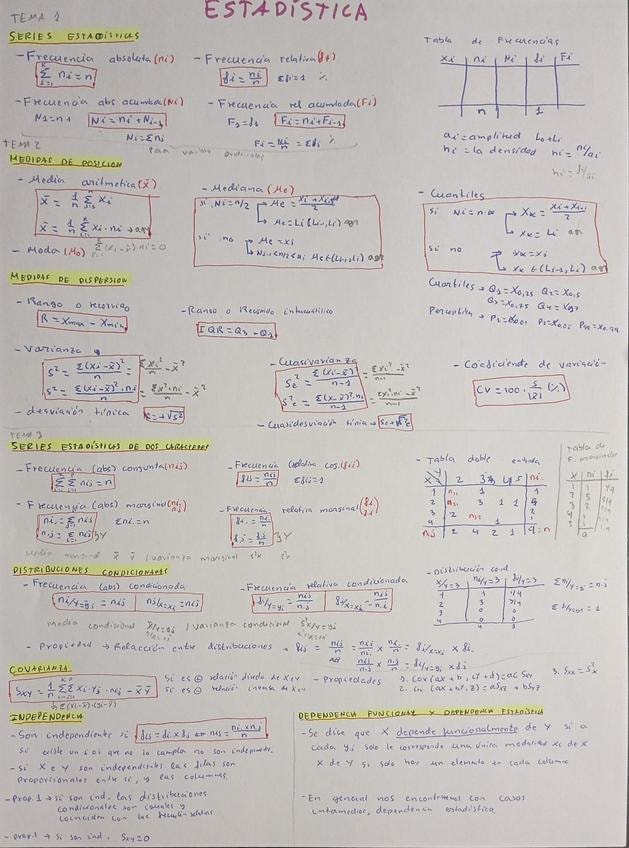 ESTADÍSTICA
TEMA 1
SERIES ESTADÍSTICAS
- Frecuencia absoluta (ni)
Σ ni = n
- Frecuencia relativa (fi)
fi = ni/n Σfi=1 %
Tabla de Frecuencias
xi ni Ni fi Fi
n 1
- Frecuencia abs acumulada (Ni)
N1=n1 Ni = ni + Ni-1
Ni = Σni
- Frecuencia rel acumulada (Fi)
F1=f1 Fi = ni + Fi-1
Fi = Ni/n = Σfi %
para variables ordinales
ai = amplitud
hi = la densidad hi = ni/ai
hi = fi/ai
TEMA 2
MEDIDAS DE POSICION
- Media aritmetica (x̄)
x̄ = 1/n Σ xi
x̄ = 1/n Σ xi · ni → agr
Σ(xi - x̄) ni = 0
- Moda (Mo)
- Mediana (Me)
si Ni = n/2 → Me = (xi + xi+1)/2
→ Me = Li (Li-1, Li) agr
si no → Me = xi
→ Ni-1 < n/2 < Ni Me ∈ (Li-1, Li) agr
- Cuantiles
si Ni = n·α → xα = (xi + xi+1)/2
→ xα = Li agr
si no → xα = xi
→ xα ∈ (Li-1, Li) agr
Cuartiles → Q1 = x0,25 Q2 = x0,5
Q3 = x0,75
Percentiles → P1 = x0,01
MEDIDAS DE DISPERSION
- Rango o recorrido
R = xmax - xmin
- Rango o Recorrido intercuartilico
IQR = Q3 - Q1
- Varianza
s² = Σ(xi - x̄)²/n = Σxi²/n - x̄²
s² = Σ(xi - x̄)²·ni/n = Σx²·ni/n - x̄²
- desviación típica s = +√s²
- Cuasivarianza
sc² = Σ(xi - x̄)²/n-1
sc² = Σ(x - x̄)²·ni/n-1
- Cuasidesviación típica → sc = +√sc²
- Coeficiente de variación
CV = 100 · s/|x̄| (%)
TEMA 3
SERIES ESTADÍSTICAS DE DOS CARACTERES
- Frecuencia (abs) conjunta (nij)
ΣΣ nij = n
- Frecuencia relativa conj. (fij)
fij = nij/n Σfij = 1
- Tabla doble entrada
Tabla de F. marginales
x ni fi
- Frecuencia (abs) marginal (ni. n.j)
ni. = Σ nij Σni. = n
n.j = Σ nij } Y
- Frecuencia relativa marginal (fi. f.j)
fi. = ni./n
f.j = n.j/n } Y
Media marginal x̄ ȳ / varianza marginal s²x s²y
DISTRIBUCIONES CONDICIONADAS
- Frecuencia (abs) condicionada
ni/Y=yj = nij nj/X=xi = nij
- Frecuencia relativa condicionada
fi/Y=yj = nij/n.j fj/X=xi = nij/ni.
- Distribución cond
x/Y=3 ni/Y=3 fi/Y=3
Media condicional / varianza condicional
- Propiedad → Relacción entre distribuciones → fij = nij/n = nij/ni. × ni./n = fj/X=xi × fi.
nij/n.j × n.j/n = fi/Y=yj × f.j
COVARIANZA
Sxy = 1/n ΣΣ xi · yj · nij - x̄ ȳ
Si es ⊕ relación directa de X e Y
Si es ⊖ relación inversa de X e Y
- Propiedades
1. Cov (ax + b, cY + d) = ac Sxy
2. Cov (ax + bY, z) = a Sxz + b Syz
3. Sxx = S²x
INDEPENDENCIA
- Son independiente si fij = fi. × f.j ⇔ nij = ni. × n.j/n
Si existe un i o j que no lo cumpla no son independ.
- Si X e Y son independientes las filas son
proporcionales entre si, y las columnas.
- Prop. 1 → si son ind, las distribuciones
condicionales son iguales y
coinciden con las
→ si son ind. Sxy = 0
DEPENDENCIA FUNCIONAL Y DEPENDENCIA ESTADÍSTICA
- Se dice que X depende funcionalmente de Y si a
cada yj solo le corresponde una única modalidad xi de X
X de Y si solo hay un elemento en cada columna
- En general nos encontramos con casos
intermedios, dependencia estadística